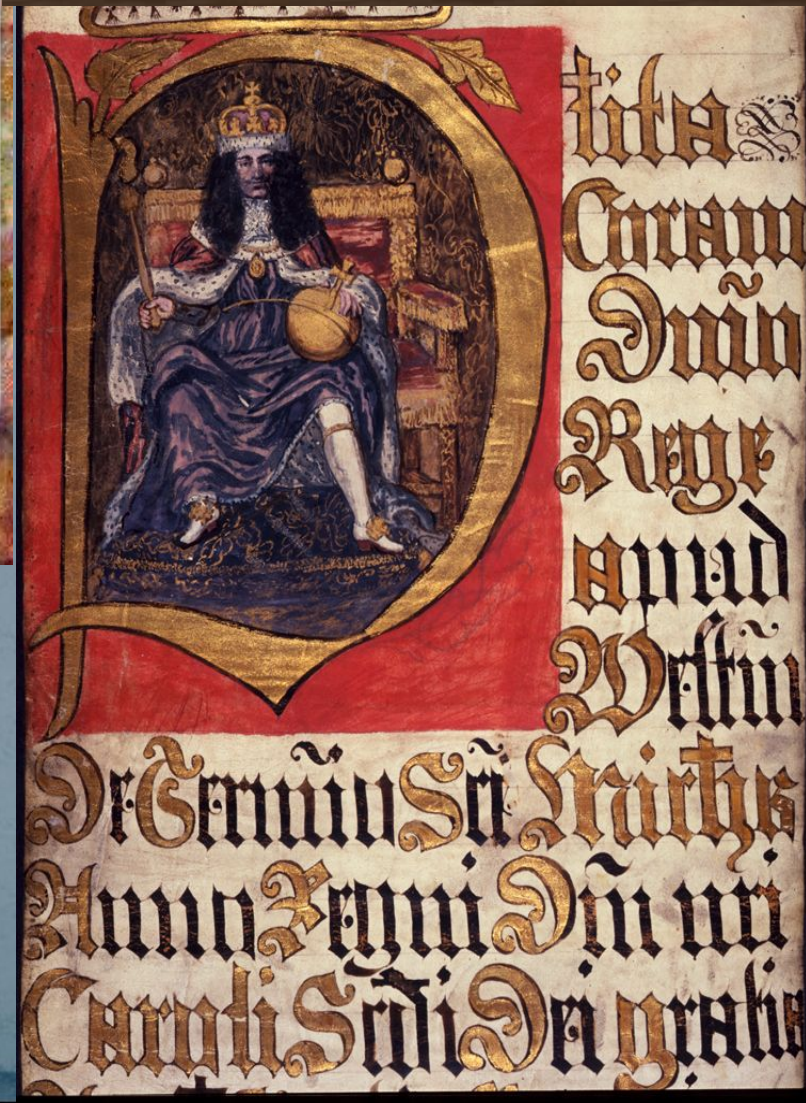 Plita
Coram
Dnĩo
Rege
apud
Westm̃
De Termĩo Scĩ Michis
Anno Regni Dñi nri
Caroli Scd̃i Dei gratia